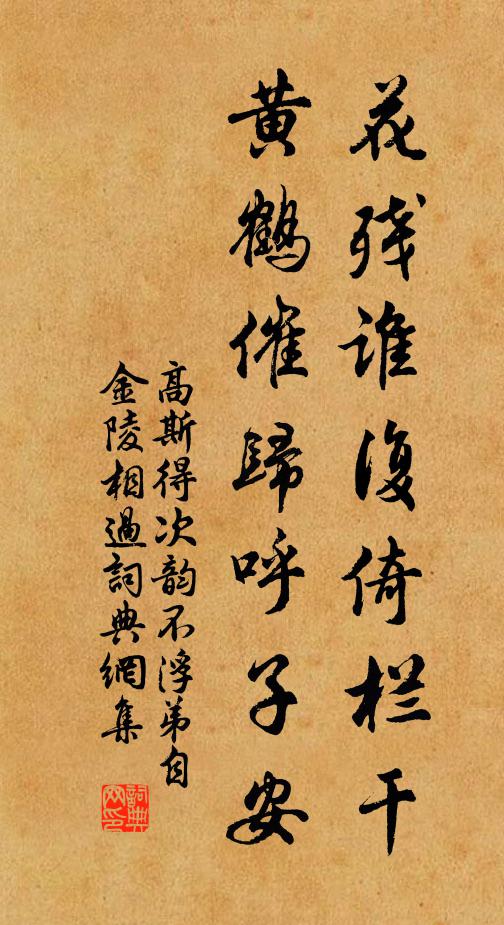 花残谁復倚栏干
黄鹤催歸呼子安
高斯得次韵不浮弟自
金陵相過詞典網集
詞典
网印